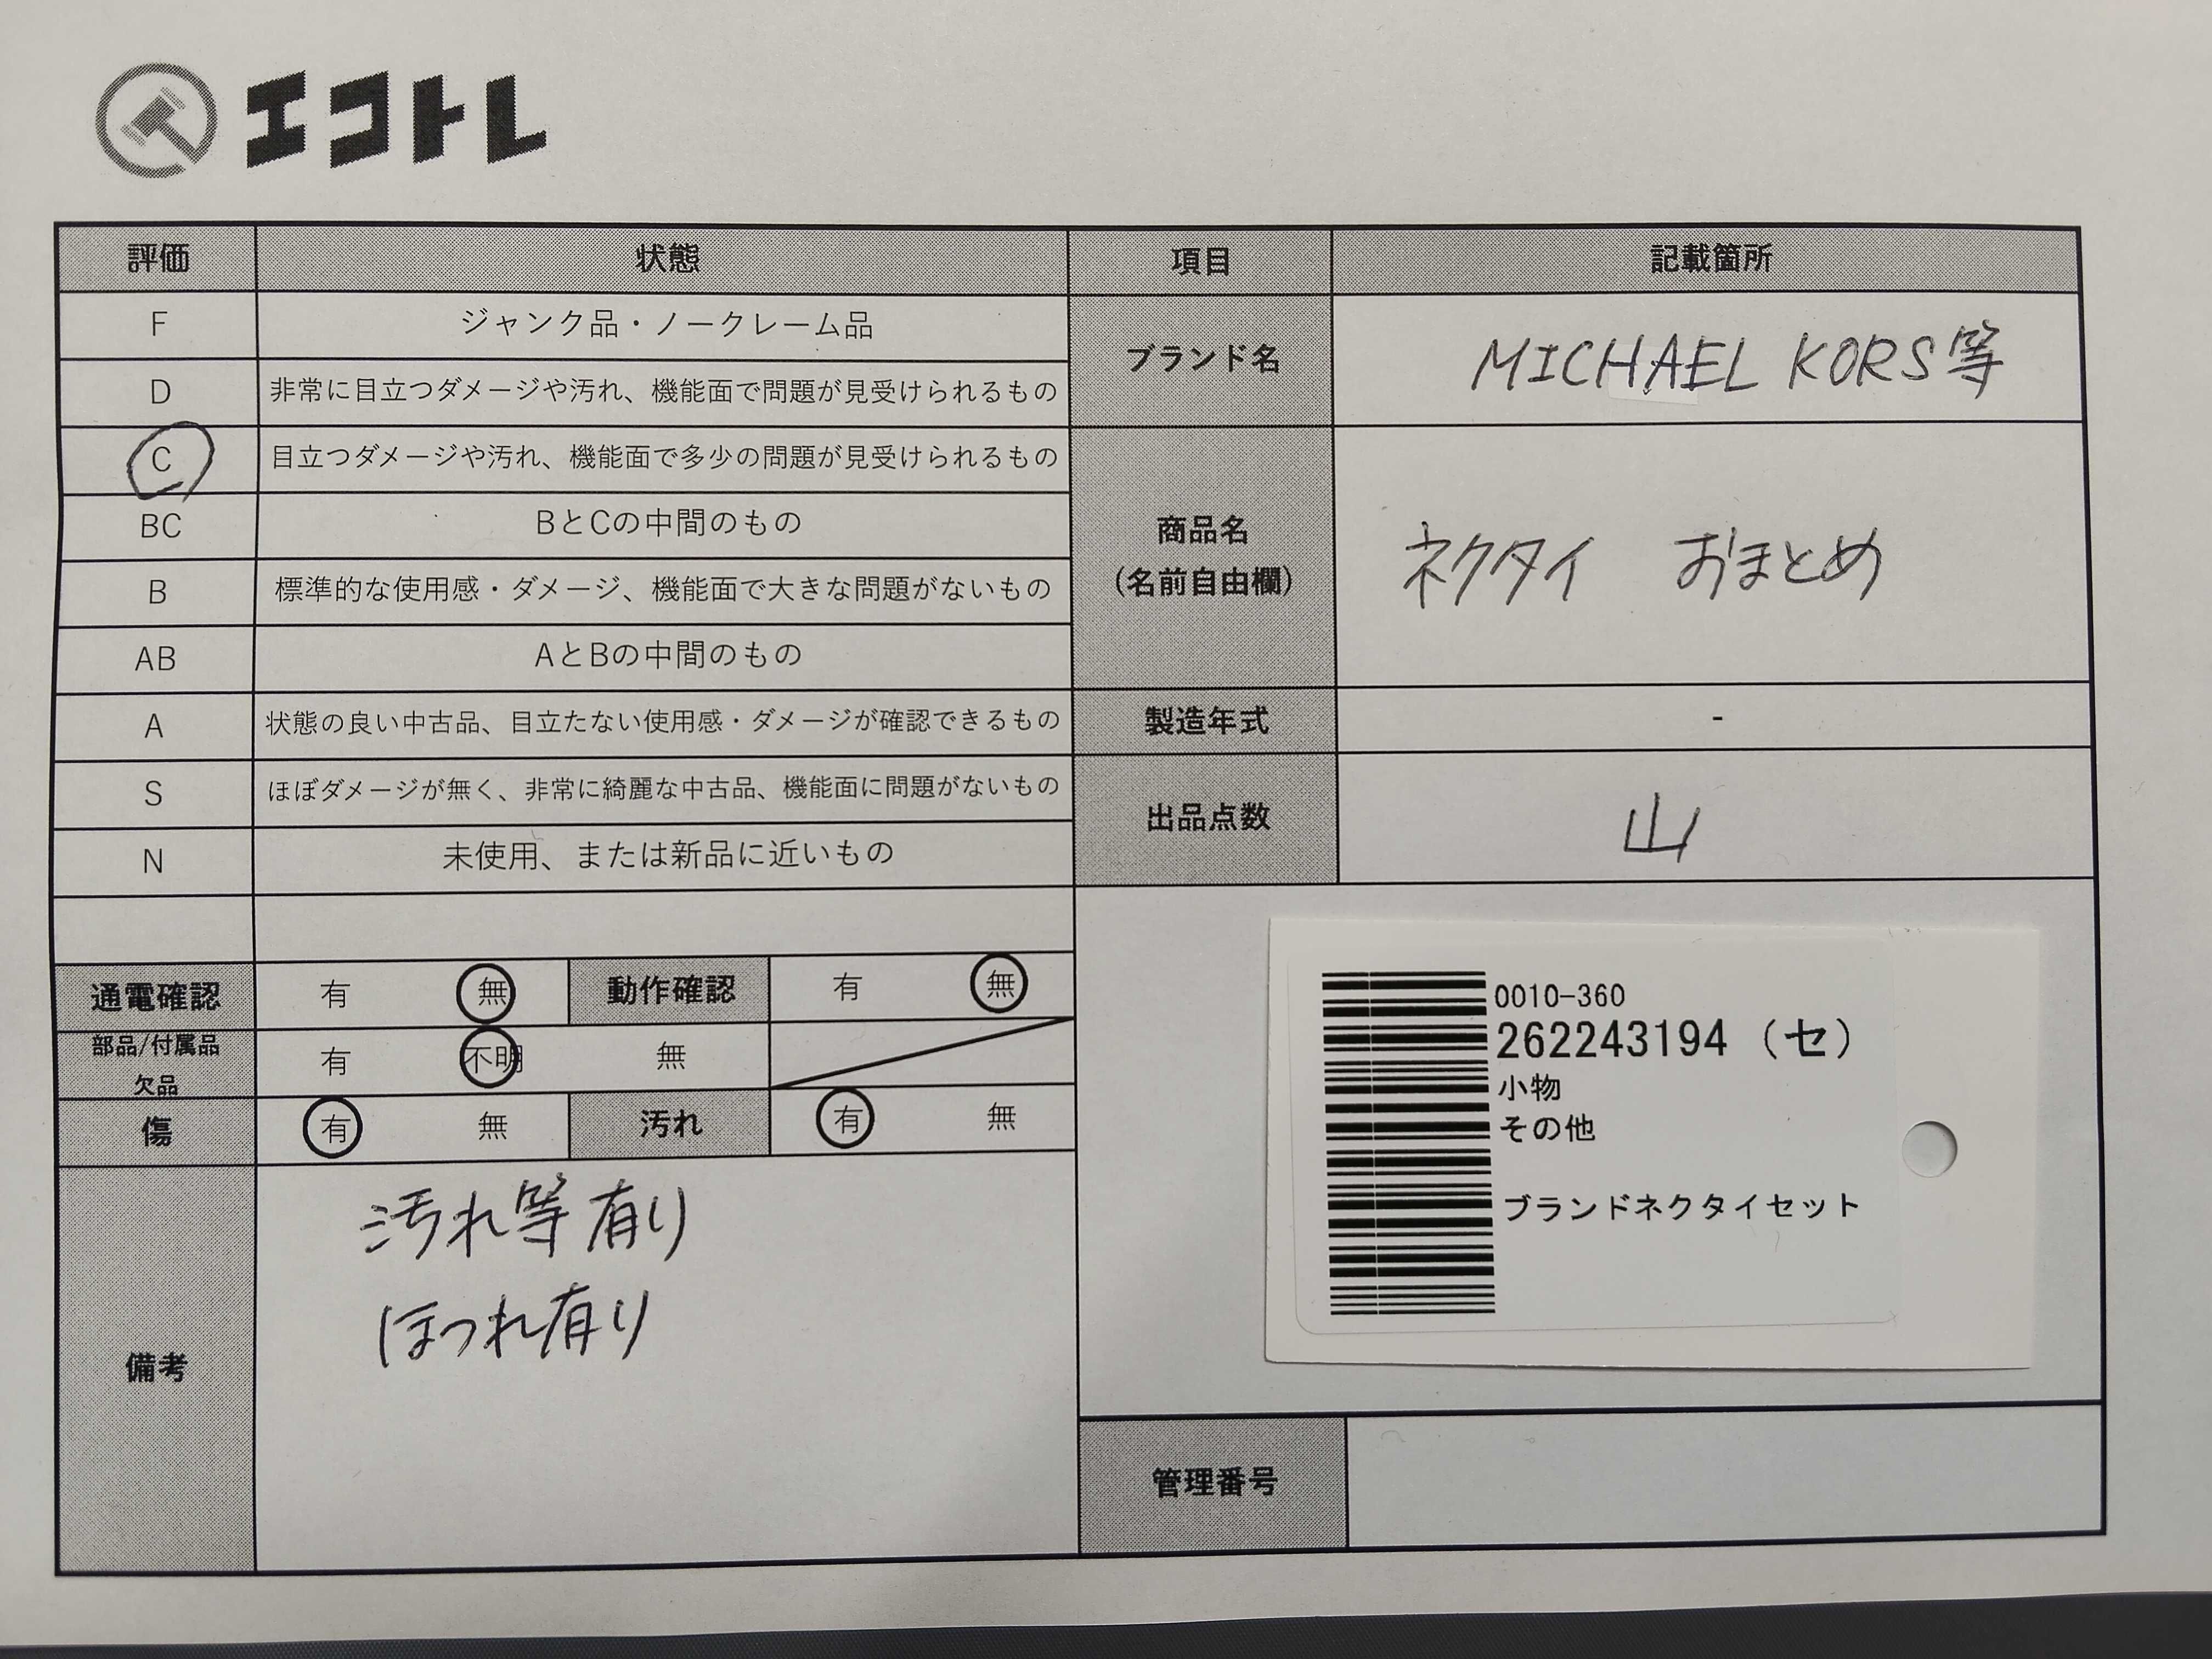 エコトレ
評価 状態 項目 記載箇所
F ジャンク品・ノークレーム品
D 非常に目立つダメージや汚れ、機能面で問題が見受けられるもの
ブランド名 MICHAEL KORS等
C 目立つダメージや汚れ、機能面で多少の問題が見受けられるもの
BC BとCの中間のもの
B 標準的な使用感・ダメージ、機能面で大きな問題がないもの
AB AとBの中間のもの
商品名
(名前自由欄)
ネクタイ おまとめ
A 状態の良い中古品、目立たない使用感・ダメージが確認できるもの
製造年式 -
S ほぼダメージが無く、非常に綺麗な中古品、機能面に問題がないもの
N 未使用、または新品に近いもの
出品点数 山
通電確認 有 無 動作確認 有 無
部品/付属品
欠品
有 不明 無
傷 有 無 汚れ 有 無
備考
汚れ等有り
ほつれ有り
0010-360
262243194 (セ)
小物
その他
ブランドネクタイセット
管理番号